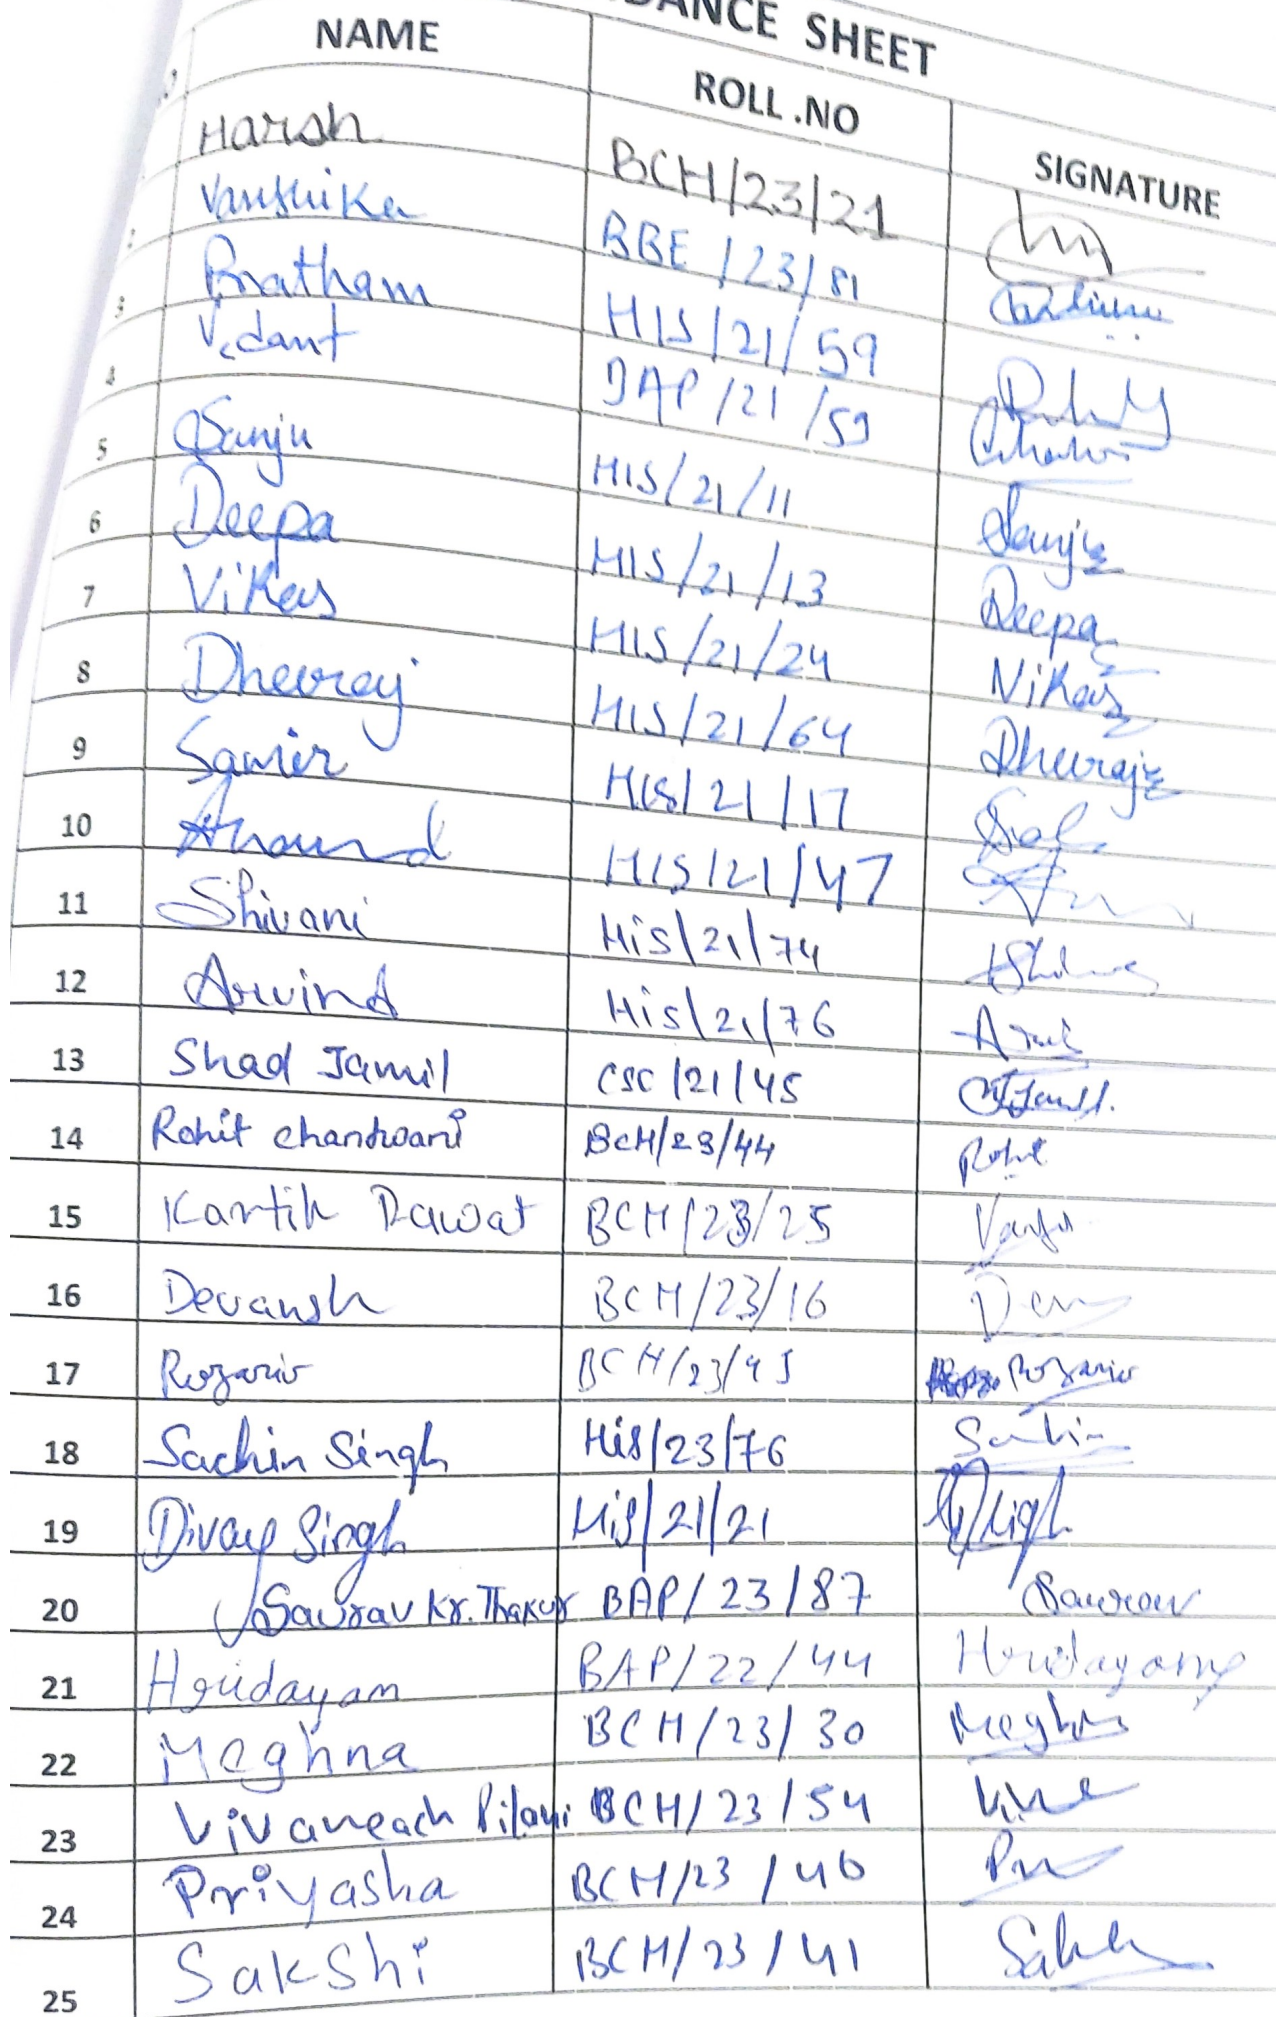 DANCE SHEET
NAME ROLL .NO SIGNATURE
Harsh BCH/23/21
2 Vanshika BBE /23/81
3 Pratham HIS/21/59
4 Vedant DAP/21/59
5 Sanju HIS/21/11 Sanju
6 Deepa HIS/21/13 Deepa
7 Vikas HIS/21/24 Vikas
8 Dheeraj HIS/21/64 Dheeraj
9 Samir HIS/21/17
10 Anand HIS/21/47
11 Shivani His/21/74
12 Arvind His/21/76
13 Shad Jamil CSC/21/45
14 Rohit Chandwani BCH/23/44 Rohit
15 Kartik Rawat BCH/23/25
16 Devansh BCH/23/16 Dev
17 Rozario BCH/23/45 Rozario
18 Sachin Singh His/23/76 Sachin
19 Divay Singh His/21/21
20 Saurav Kr. Thakur BAP/23/87 Saurav
21 Hridayam BAP/22/44 Hridayam
22 Meghna BCH/23/30 Meghna
23 Vivaneach Pilani BCH/23/54
24 Priyasha BCH/23/40
25 Sakshi BCH/23/41